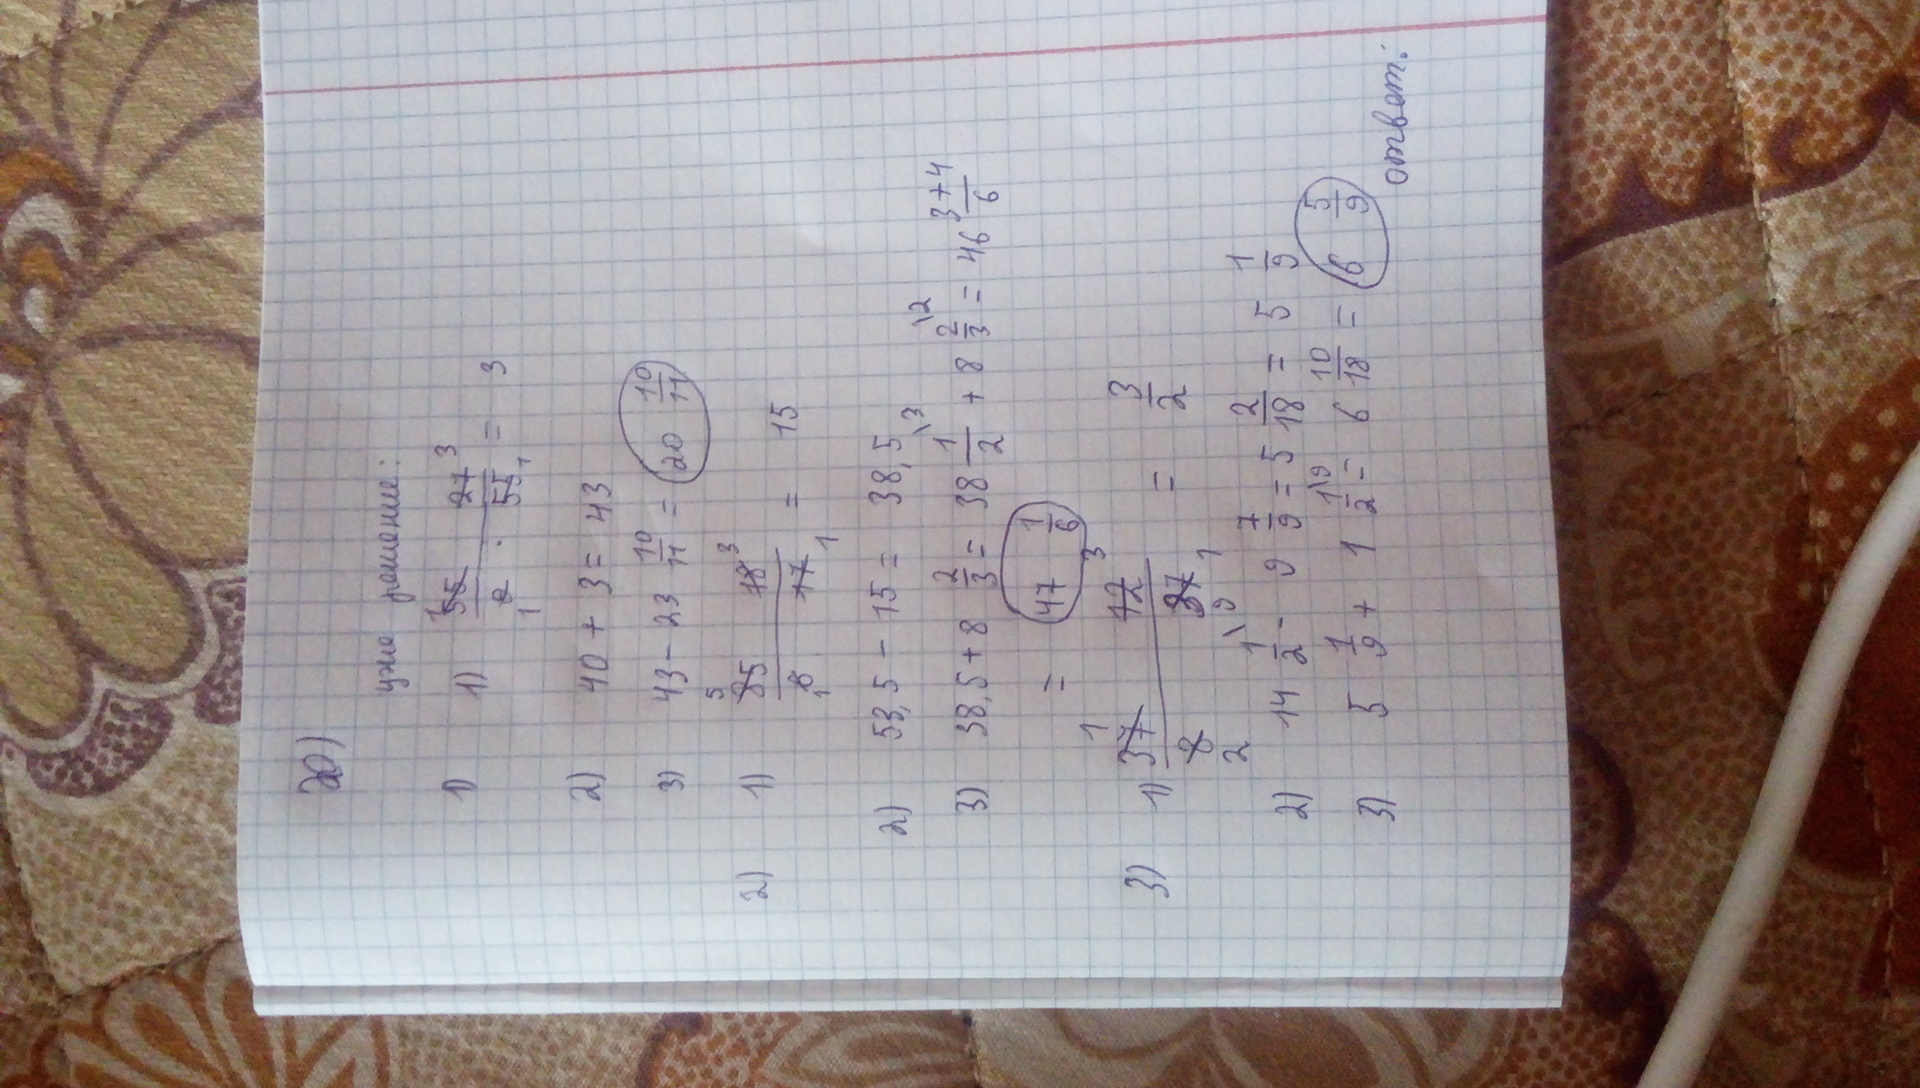 20)
уже решение:
1) 1) 55/9 · 27/55 = 3
2) 40 + 3 = 43
3) 43 - 23 10/11 = 20 10/11
2) 1) 85/6 18/17 = 15
2) 53,5 - 15 = 38,5
3) 38,5 + 8 2/3 = 38 1/2 \3 + 8 2/3 \2 = 46 3+4/6
= 47 1/6
3) 1) 37/8 12/37 = 3/2
2) 14 1/2 \9 - 9 7/9 = 5 2/18 = 5 1/9
3) 5 1/9 + 1 1/2 \9 = 6 10/18 = 6 5/9
ответ: